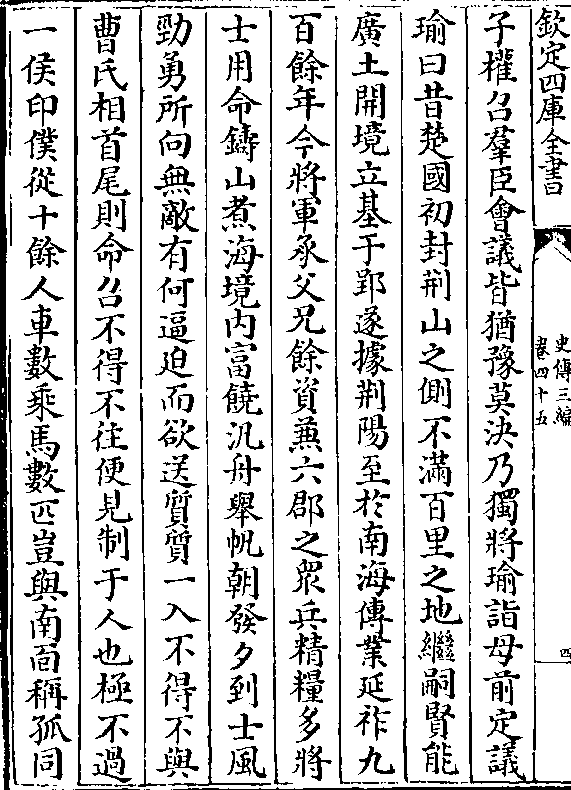 欽定四庫全書
史傳三編
卷四十五
四
子權召羣臣會議皆猶豫莫決乃獨將瑜詣母前定議
瑜曰昔楚國初封荆山之側不滿百里之地繼嗣賢能
廣土開境立基于郢遂據荆陽至於南海傳業延祚九
百餘年今將軍承父兄餘資兼六郡之衆兵精糧多將
士用命鑄山煮海境内富饒汎舟舉帆朝發夕到士風
勁勇所向無敵有何逼迫而欲送質質一入不得不與
曹氏相首尾則命召不得不往便見制于人也極不過
一侯印僕從十餘人車數乘馬數匹豈與南面稱孤同